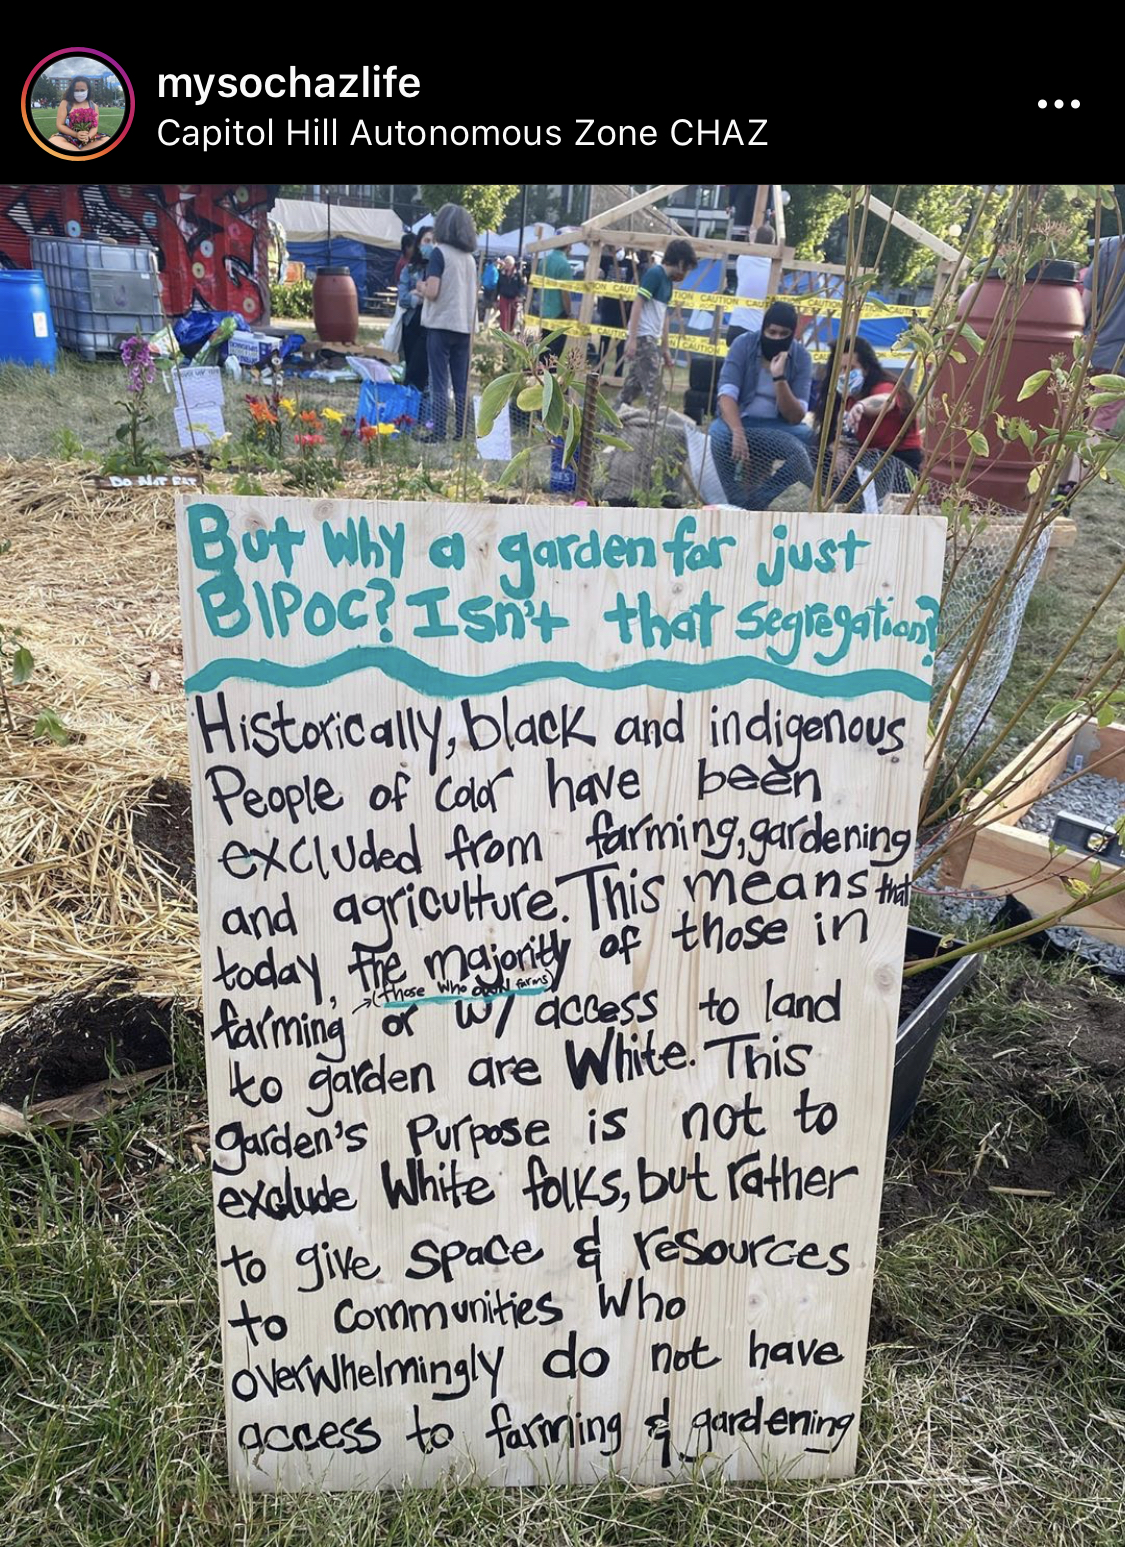 mysochazlife
Capitol Hill Autonomous Zone CHAZ
CAUTION CAUT
TION CAUTION CAU
CAUTION
CAUTION
DO NOT EAT
But Why a garden for just
BIPOC? Isn't that segregation?
Historically, black and indigenous
People of color have been
excluded from farming, gardening
and agriculture. This means that
today, the majority of those in
(those who own farms)
farming or w/ access to land
to garden are White. This
garden's Purpose is not to
exclude White folks, but rather
to give space & resources
to communities who
overwhelmingly do not have
access to farming & gardening